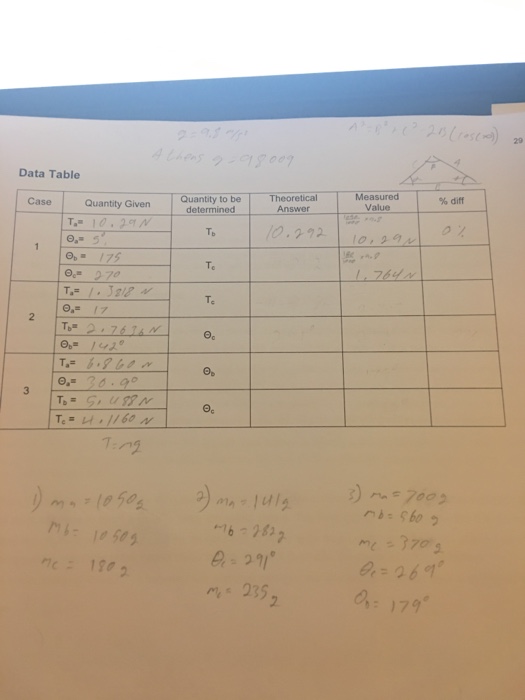 g = 9.8 m/s²
29
Athens g = 9.8009
Data Table
Case Quantity Given Quantity to be determined Theoretical Answer Measured Value % diff
1
Ta= 10.29 N
Θa= 5°
Θb = 175
Θc= 270
Tb 10.292 10.29 N 0%
Tc 1.764 N
2
Ta= 1.3818 N
Θa= 17
Tb= 2.7636 N
Θb= 142°
Tc
Θc
3
Ta= 6.860 N
Θa= 30.9°
Tb = 5.488 N
Tc = 4.1160 N
Θb
Θc
T=mg
1) ma = 1050g
mb= 1050g
mc = 180g
2) ma = 141g
mb = 282g
Θc = 291°
mc = 235g
3) ma = 700g
mb = 560g
mc = 370g
Θc = 269°
Θb = 179°